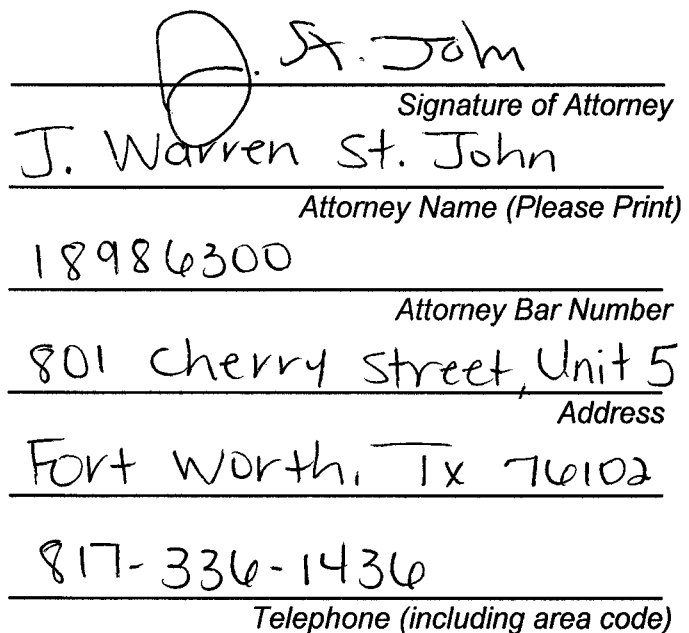 J. St. John
Signature of Attorney
J. Warren St. John
Attorney Name (Please Print)
18986300
Attorney Bar Number
801 Cherry Street, Unit 5
Address
Fort Worth, Tx 76102
817-336-1436
Telephone (including area code)